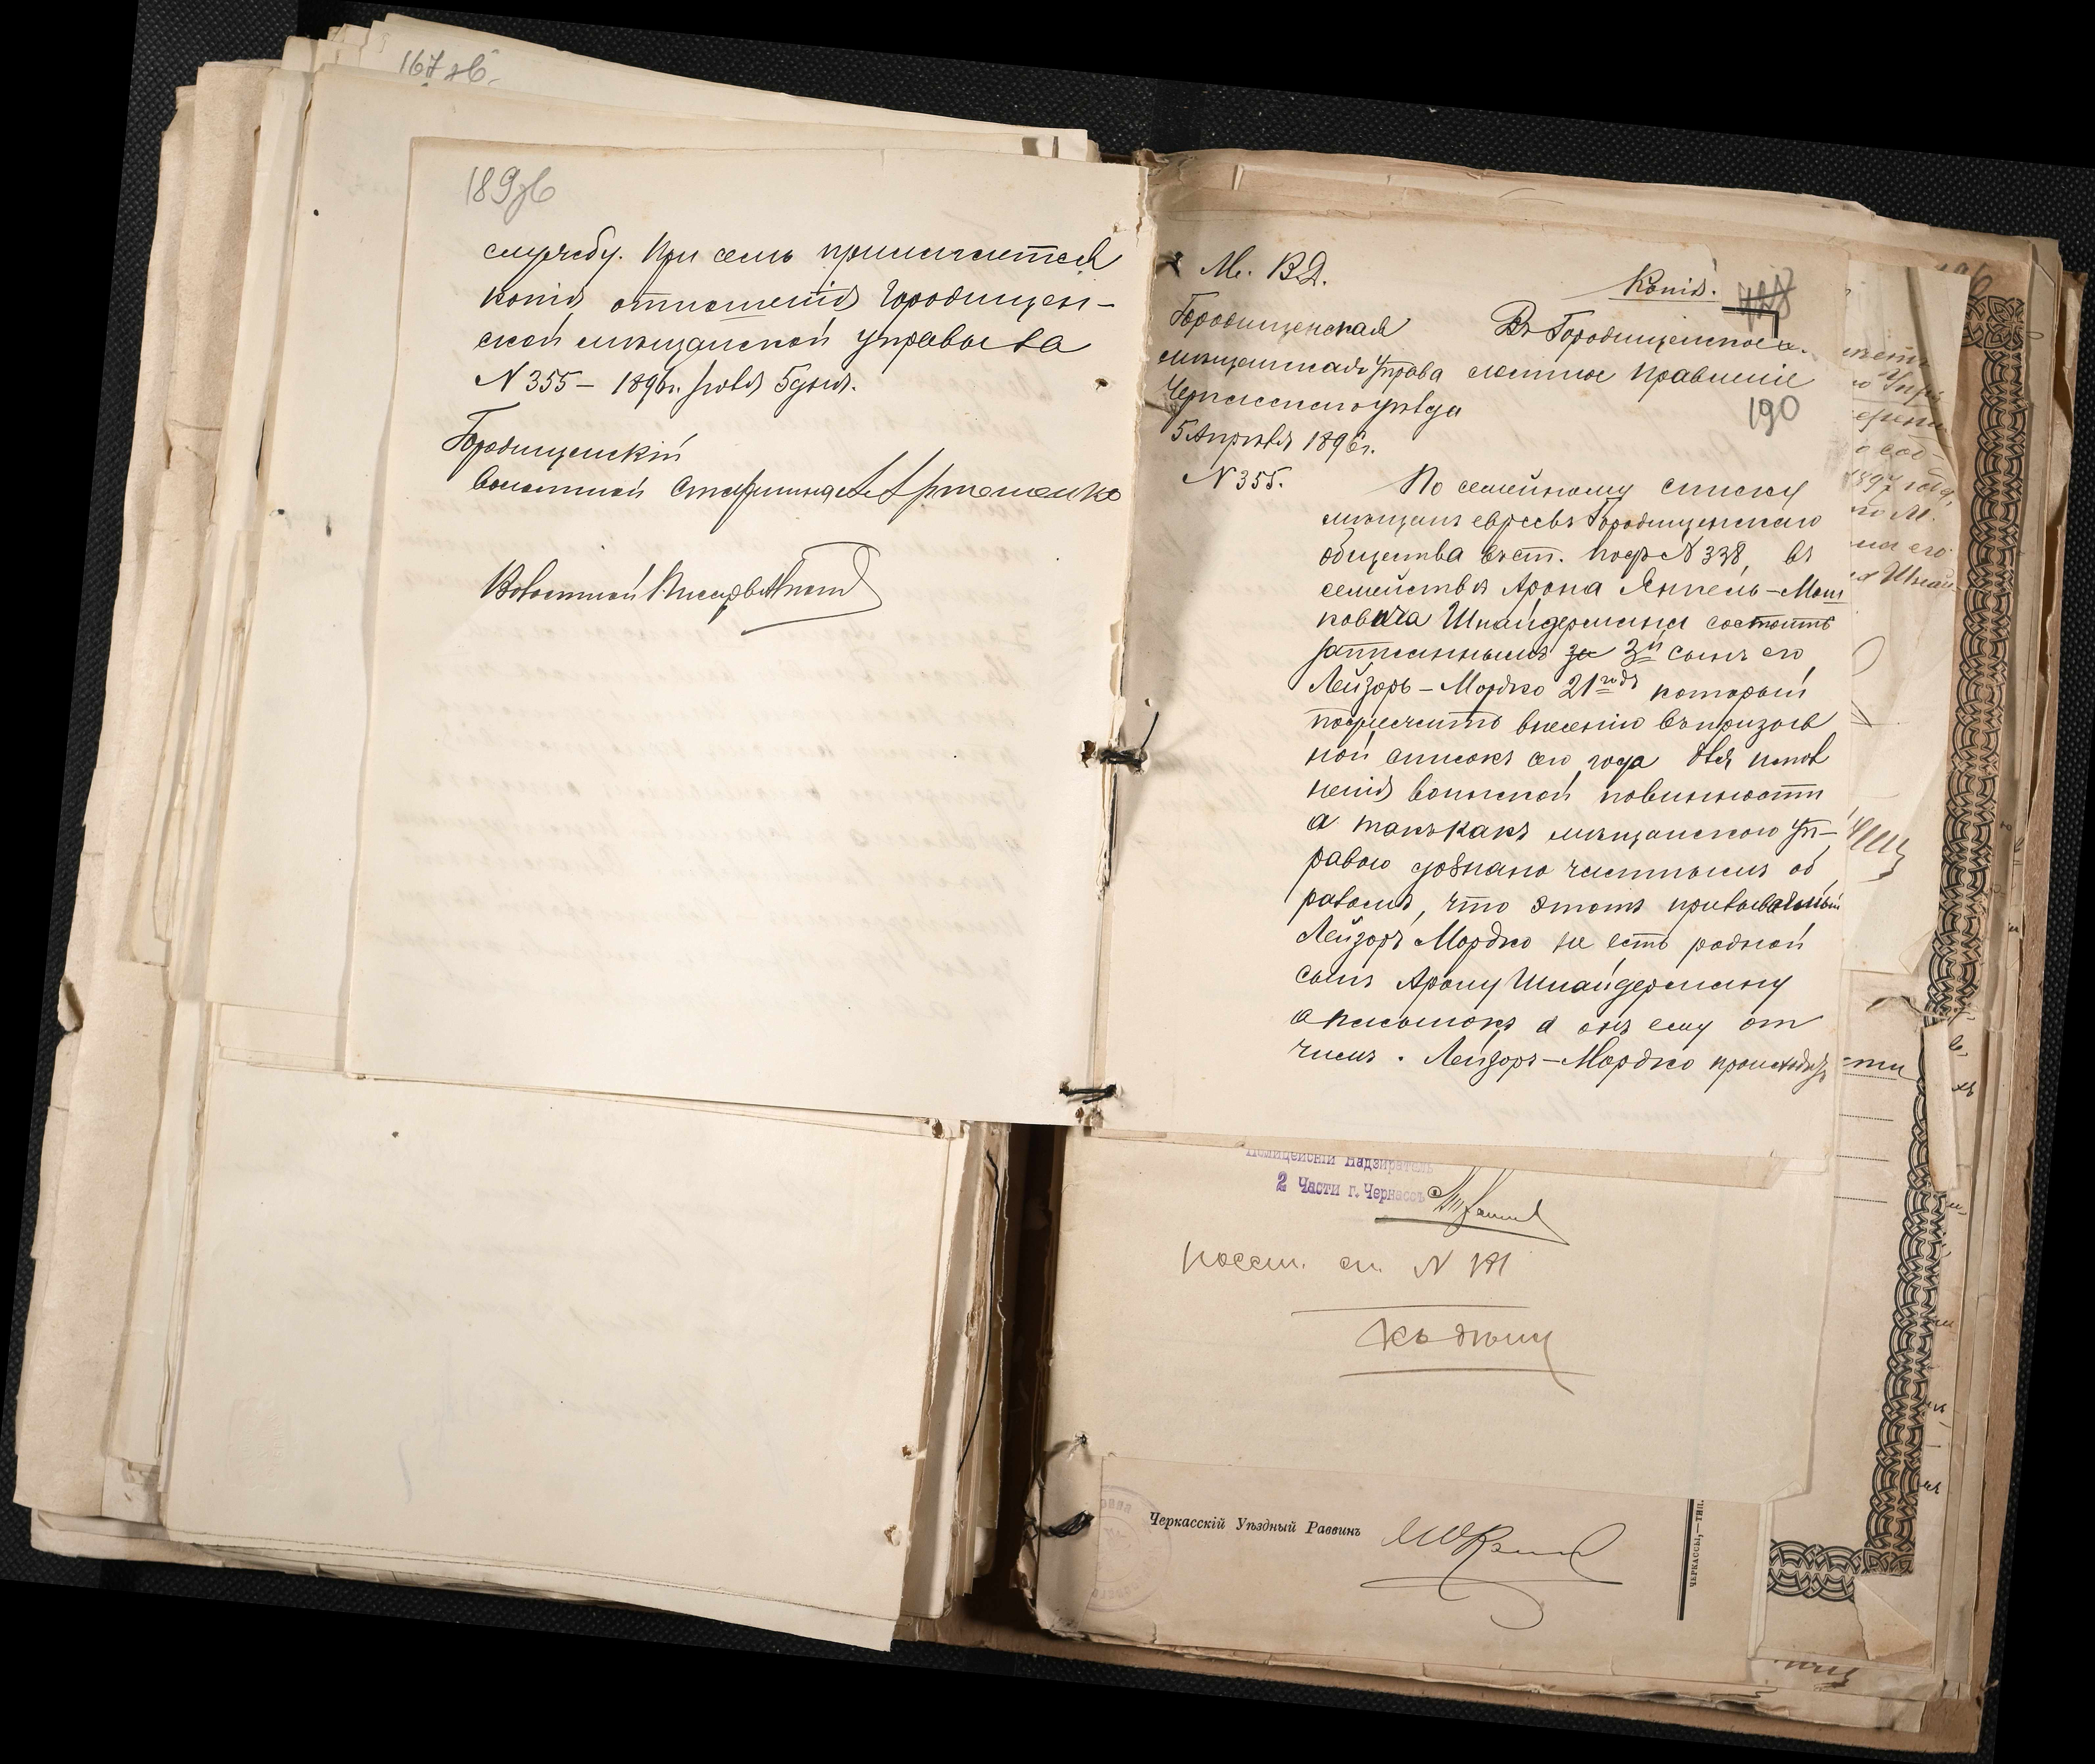 167 об.
189 об
службу. При семъ прилагается
копія отношенія Городищен-
ской мѣщанской управы за
N 355 – 1896г. Іюля 5 дня.
Городищенскій
Волостной Старшина А. Артеменко
Волостной Писарь
М. В.Д.
Копія.
Городищенская
мѣщанская Управа
Черкасскаго уѣзда
5 Апрѣля 1896г.
N 355.
Въ Городищенское во-
лостное Правленіе
190
По семейному списку
мѣщанъ евреевъ Городищенскаго
общества въ ст. подъ N 338, въ
семействѣ Арона Янкель-Мош
ковича Шнайдермана состоитъ
записаннымъ 3й сынъ его
Лейзоръ-Мордко 21 годъ который
подлежитъ внесенію въ призыв
ной списокъ сего года для испол
ненія воинской повинности
а такъ какъ мѣщанскою Уп-
равою дознано частнымъ об
разомъ, что этотъ призываемый
Лейзоръ Мордко не есть родной
сынъ Арону Шнайдерману
а пасынокъ а онъ ему от
чимъ. Лейзоръ-Мордко происходитъ
Полицейскій Надзиратель
2 Части г. Черкассъ
посем. сп. N
Къ дѣлу
Черкасскій Уѣздный Раввинъ
ЧЕРКАССЫ,—ТИП.
196